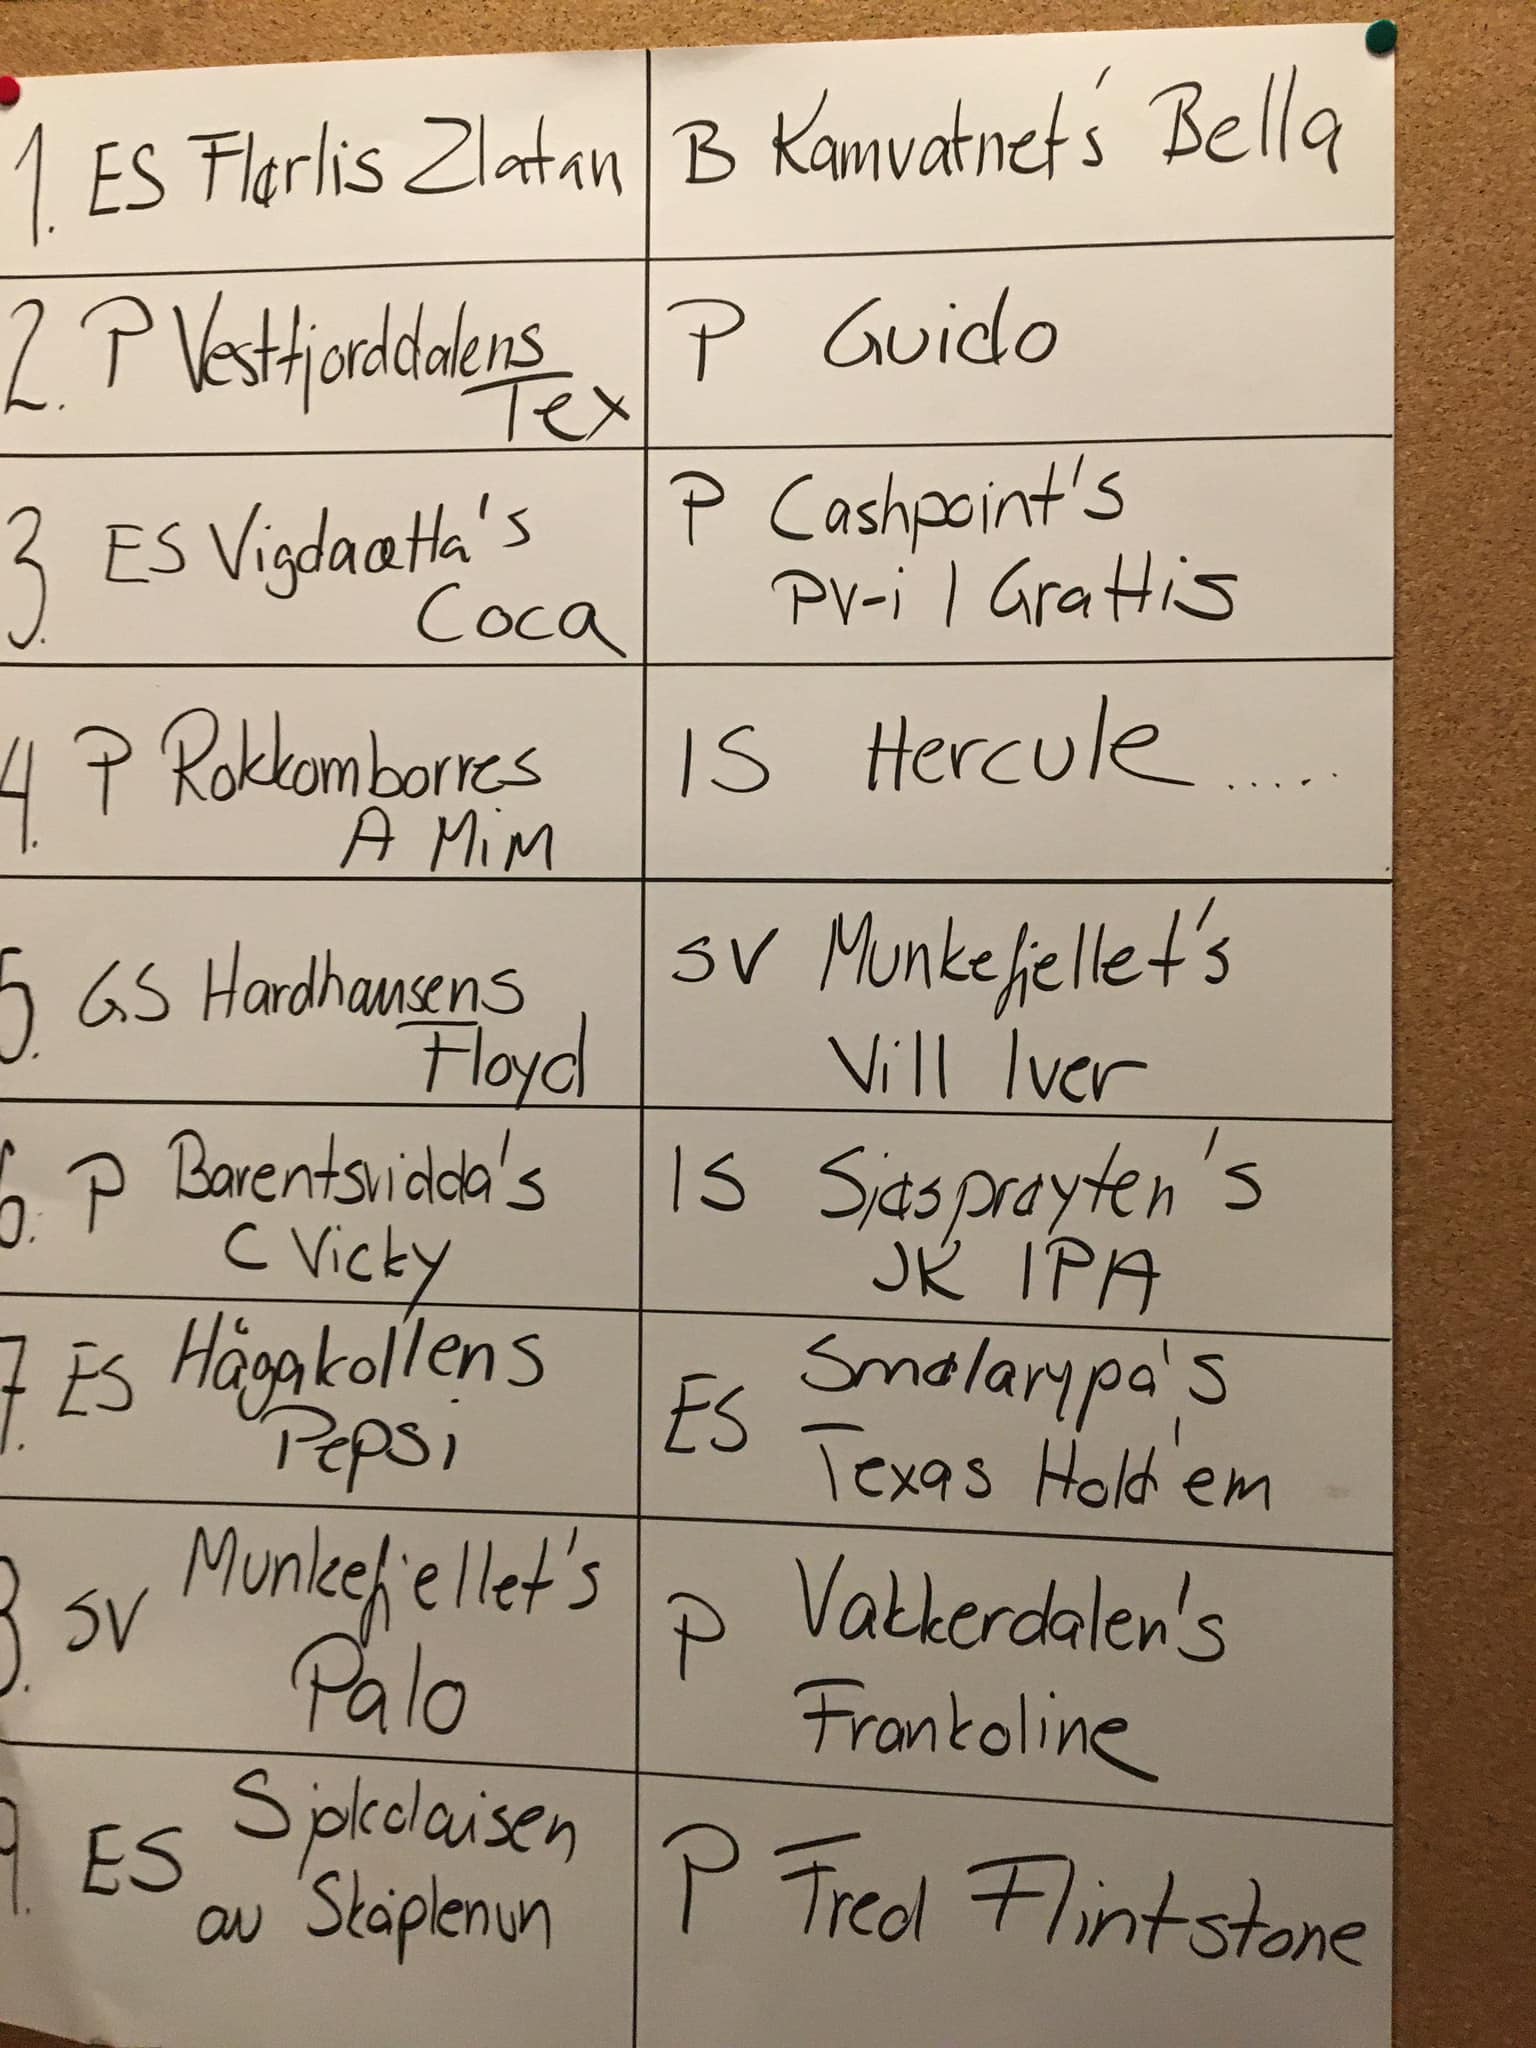 1. ES Flørlis Zlatan
B Kamvatnet's Bella
2. P Vestfjorddalens
Tex
P Guido
3. ES Vigdaætta's
Coca
P Cashpoint's
PV-i | Grattis
4. P Rokkomborres
A MiM
IS Hercule.....
5. GS Hardhausens
Floyd
SV Munkefjellet's
Vill Iver
6. P Barentsvidda's
C Vicky
IS Sjøsprøyten's
JK IPA
7. ES Hågakollens
Pepsi
ES Smølarypa's
Texas Hold'em
8. SV Munkefjellet's
Palo
P Vakkerdalen's
Frankoline
9. ES
av Skåplenun
P Fred Flintstone